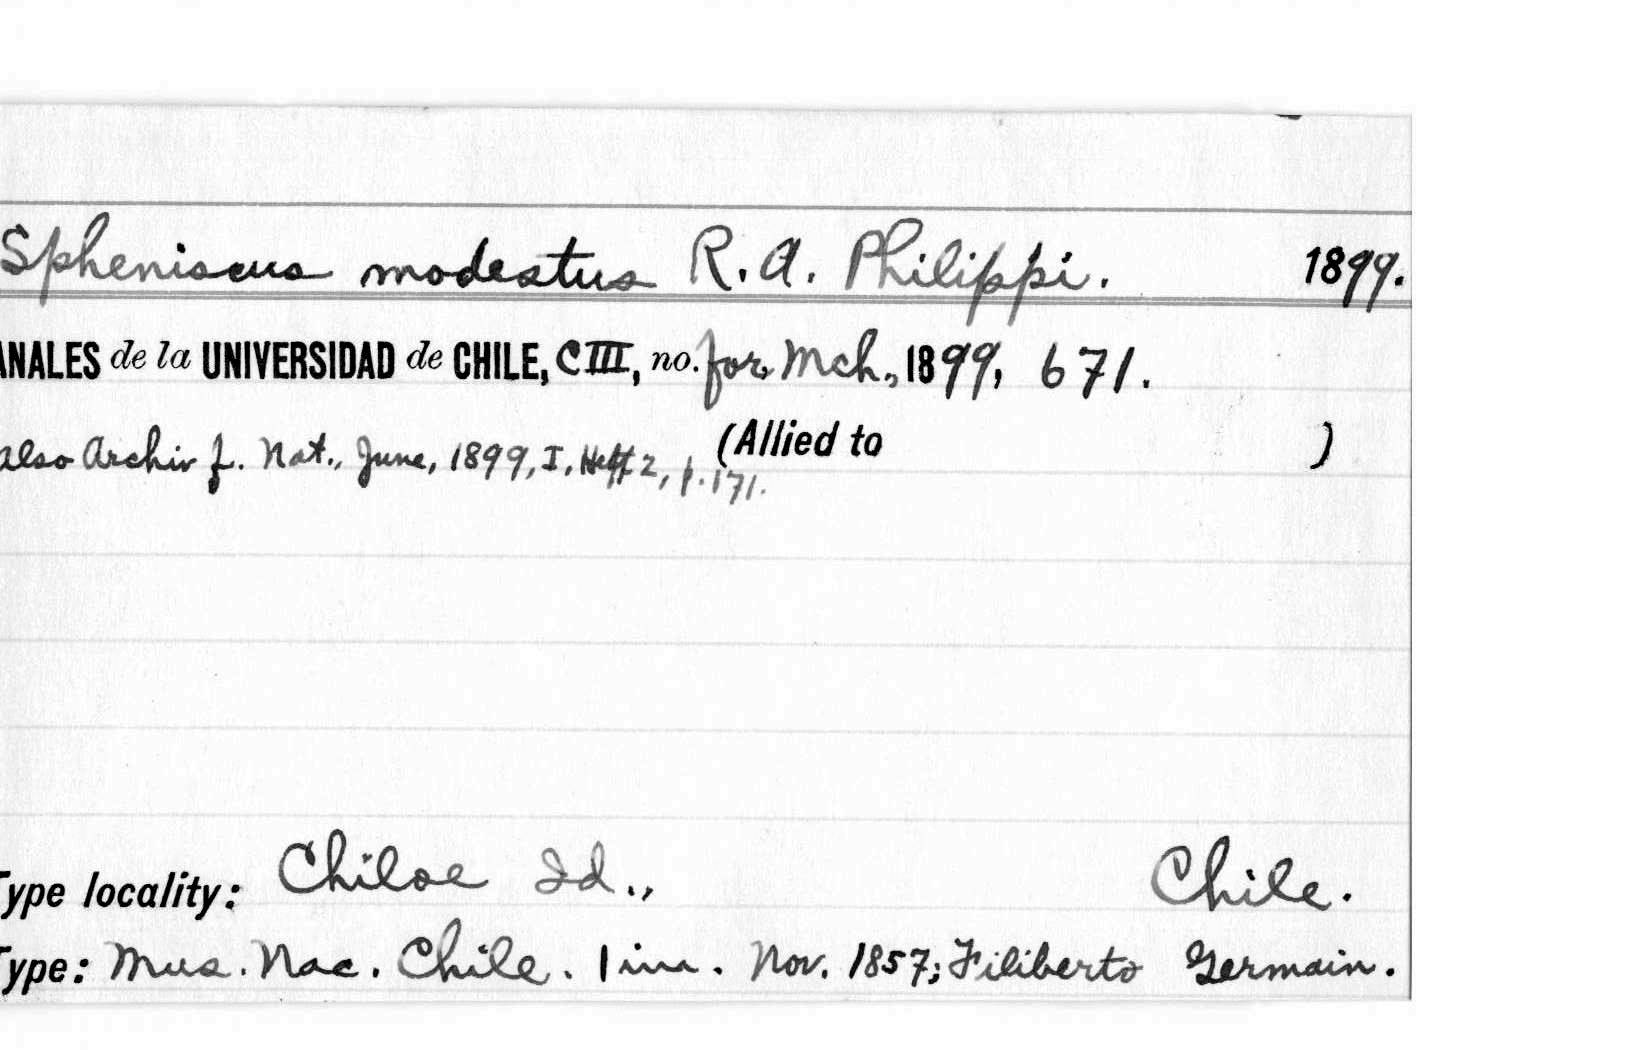 Spheniscus modestus R. A. Philippi. 1899.
ANALES de la UNIVERSIDAD de CHILE, CIII, no. for Mch., 1899, 671.
also Archiv f. Nat., June, 1899, I, Heft 2, p. 171. (Allied to )
Type locality: Chiloe Id., Chile.
Type: Mus. Nac. Chile. 1 im. Nov. 1857; Filiberto Germain.